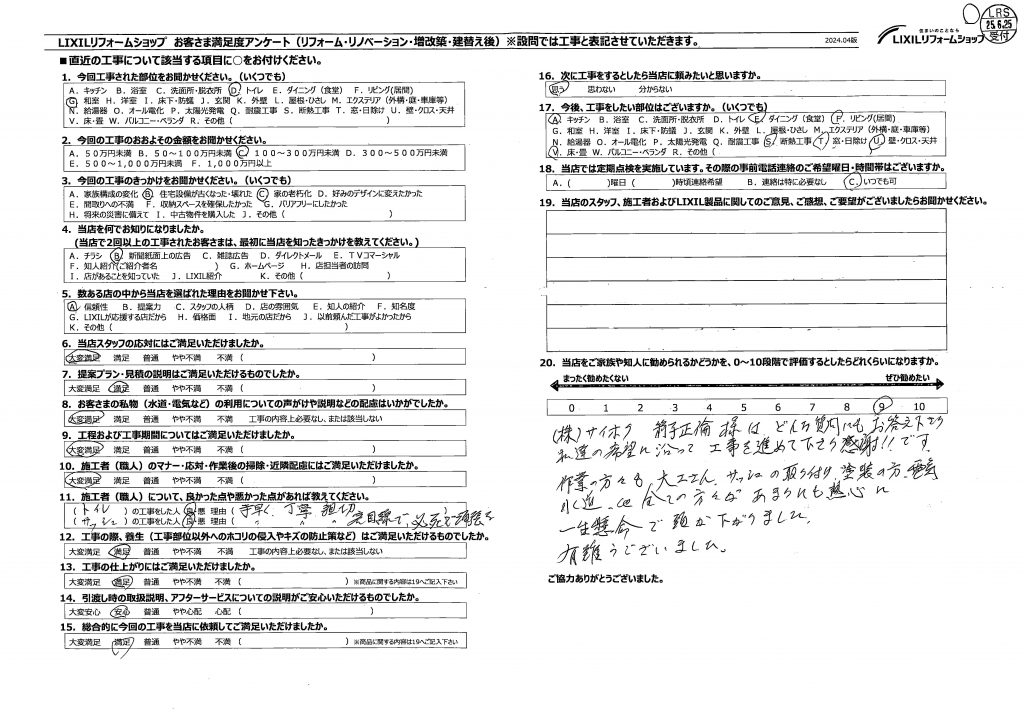 LIXILリフォームショップ お客さま満足度アンケート（リフォーム・リノベーション・増改築・建替え後）※設問では工事と表記させていただきます。
2024.04版
住まいのことなら
LIXILリフォームショップ
LRS
25.6.25
受付
■直近の工事について該当する項目に○をお付けください。
1．今回工事された部位をお聞かせください。（いくつでも）
A．キッチン B．浴室 C．洗面所・脱衣所 D．トイレ E．ダイニング（食堂） F．リビング(居間)
G．和室 H．洋室 I．床下・防蟻 J．玄関 K．外壁 L．屋根・ひさし M．エクステリア（外構・庭・車庫等）
N．給湯器 O．オール電化 P．太陽光発電 Q．耐震工事 S．断熱工事 T．窓・日除け U．壁・クロス・天井
V．床・畳 W．バルコニー・ベランダ R．その他（ ）
2．今回の工事のおおよその金額をお聞かせください。
A．50万円未満 B．50～100万円未満 C．100～300万円未満 D．300～500万円未満
E．500～1,000万円未満 F．1,000万円以上
3．今回の工事のきっかけをお聞かせください。（いくつでも）
A．家族構成の変化 B．住宅設備が古くなった・壊れた C．家の老朽化 D．好みのデザインに変えたかった
E．間取りへの不満 F．収納スペースを確保したかった G．バリアフリーにしたかった
H．将来の災害に備えて I．中古物件を購入した J．その他（ ）
4．当店を何でお知りになりましたか。
(当店で2回以上の工事されたお客さまは、最初に当店を知ったきっかけを教えてください。）
A．チラシ B．新聞紙面上の広告 C．雑誌広告 D．ダイレクトメール E．TVコマーシャル
F．知人紹介(ご紹介者名 ) G．ホームページ H．店担当者の訪問
I．店があることを知っていた J．LIXIL紹介 K．その他（ ）
5．数ある店の中から当店を選ばれた理由をお聞かせ下さい。
A．信頼性 B．提案力 C．スタッフの人柄 D．店の雰囲気 E．知人の紹介 F．知名度
G．LIXILが応援する店だから H．価格面 I．地元の店だから J．以前頼んだ工事がよかったから
K．その他（ ）
6．当店スタッフの応対にはご満足いただけましたか。
大変満足 満足 普通 やや不満 不満（ ）
7．提案プラン・見積の説明はご満足いただけるものでしたか。
大変満足 満足 普通 やや不満 不満（ ）
8．お客さまの私物（水道・電気など）の利用についての声がけや説明などの配慮はいかがでしたか。
大変満足 満足 普通 やや不満 不満 工事の内容上必要なし、または該当しない
9．工程および工事期間についてはご満足いただけましたか。
大変満足 満足 普通 やや不満 不満（ ）
10．施工者（職人）のマナー・応対・作業後の掃除・近隣配慮にはご満足いただけましたか。
大変満足 満足 普通 やや不満 不満（ ）
11．施工者（職人）について、良かった点や悪かった点があれば教えてください。
（ トイレ ）の工事をした人 良 悪 理由（ 手早く、丁寧 親切 ）
（ サッシュ ）の工事をした人 良 悪 理由（ 〃 〃 〃
12．工事の際、養生（工事部位以外へのホコリの侵入やキズの防止策など）はご満足いただけるものでしたか。
大変満足 満足 普通 やや不満 不満 工事の内容上必要なし、または該当しない
13．工事の仕上がりにはご満足いただけましたか。
大変満足 満足 普通 やや不満 不満（ ）※商品に関する内容は19へご記入下さい
14．引渡し時の取扱説明、アフターサービスについての説明がご安心いただけるものでしたか。
大変安心 安心 普通 やや心配 心配（ ）
15．総合的に今回の工事を当店に依頼してご満足いただけましたか。
大変満足 満足 普通 やや不満 不満（ ）※商品に関する内容は19へご記入下さい
16．次に工事をするとしたら当店に頼みたいと思いますか。
思う 思わない 分からない
17．今後、工事をしたい部位はございますか。（いくつでも）
A．キッチン B．浴室 C．洗面所・脱衣所 D．トイレ E．ダイニング（食堂） F．リビング(居間)
G．和室 H．洋室 I．床下・防蟻 J．玄関 K．外壁 L．屋根・ひさし M．エクステリア（外構・庭・車庫等）
N．給湯器 O．オール電化 P．太陽光発電 Q．耐震工事 S．断熱工事 T．窓・日除け U．壁・クロス・天井
V．床・畳 W．バルコニー・ベランダ R．その他（ ）
18．当店では定期点検を実施しています。その際の事前電話連絡のご希望曜日・時間帯はございますか。
A．（ ）曜日（ ）時頃連絡希望 B．連絡は特に必要なし C．いつでも可
19．当店のスタッフ、施工者およびLIXIL製品に関してのご意見、ご感想、ご要望がございましたらお聞かせください。
20．当店をご家族や知人に勧められるかどうかを、0～10段階で評価するとしたらどれくらいになりますか。
まったく勧めたくない ぜひ勧めたい
0 1 2 3 4 5 6 7 8 9 10
(株)サイホク 正倫 様は どんな質問にも お答え下さり
私達の希望に沿って 工事を進めて下さり感謝!!です
作業の方々も 大工さん、サッシュの取り付け、塗装の方、電気
水道、他 全ての方々が あまりにも 熱心に
一生懸命で 頭が下がりました。
有難うございました。
ご協力ありがとうございました。